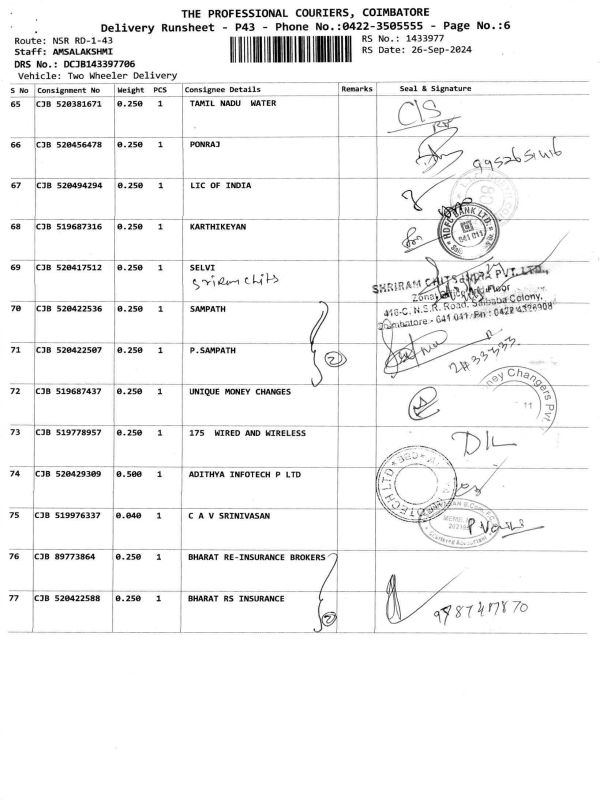 THE PROFESSIONAL COURIERS, COIMBATORE
Delivery Runsheet - P43 - Phone No.:0422-3505555 - Page No.:6
Route: NSR RD-1-43
RS No.: 1433977
Staff: AMSALAKSHMI
RS Date: 26-Sep-2024
DRS No.: DCJB143397706
Vehicle: Two Wheeler Delivery
S No Consignment No Weight PCS Consignee Details Remarks Seal & Signature
65 CJB 520381671 0.250 1 TAMIL NADU WATER
C/S
66 CJB 520456478 0.250 1 PONRAJ
67 CJB 520494294 0.250 1 LIC OF INDIA
68 CJB 519687316 0.250 1 KARTHIKEYAN
HDFC BANK LTD.
641 011
69 CJB 520417512 0.250 1 SELVI
Sriram chits
SHRIRAM CHITS PVT. LTD.,
Zonal Office, Floor
418-C, N.S.R. Road, Saibaba Colony,
Coimbatore - 641 011. Ph : 0422
70 CJB 520422536 0.250 1 SAMPATH
71 CJB 520422507 0.250 1 P.SAMPATH
2
72 CJB 519687437 0.250 1 UNIQUE MONEY CHANGES
ney Changers Pvt.
11
73 CJB 519778957 0.250 1 175 WIRED AND WIRELESS
74 CJB 520429309 0.500 1 ADITHYA INFOTECH P LTD
OTECH LTD
75 CJB 519976337 0.040 1 C A V SRINIVASAN
76 CJB 89773864 0.250 1 BHARAT RE-INSURANCE BROKERS
77 CJB 520422588 0.250 1 BHARAT RS INSURANCE
2
9787487870